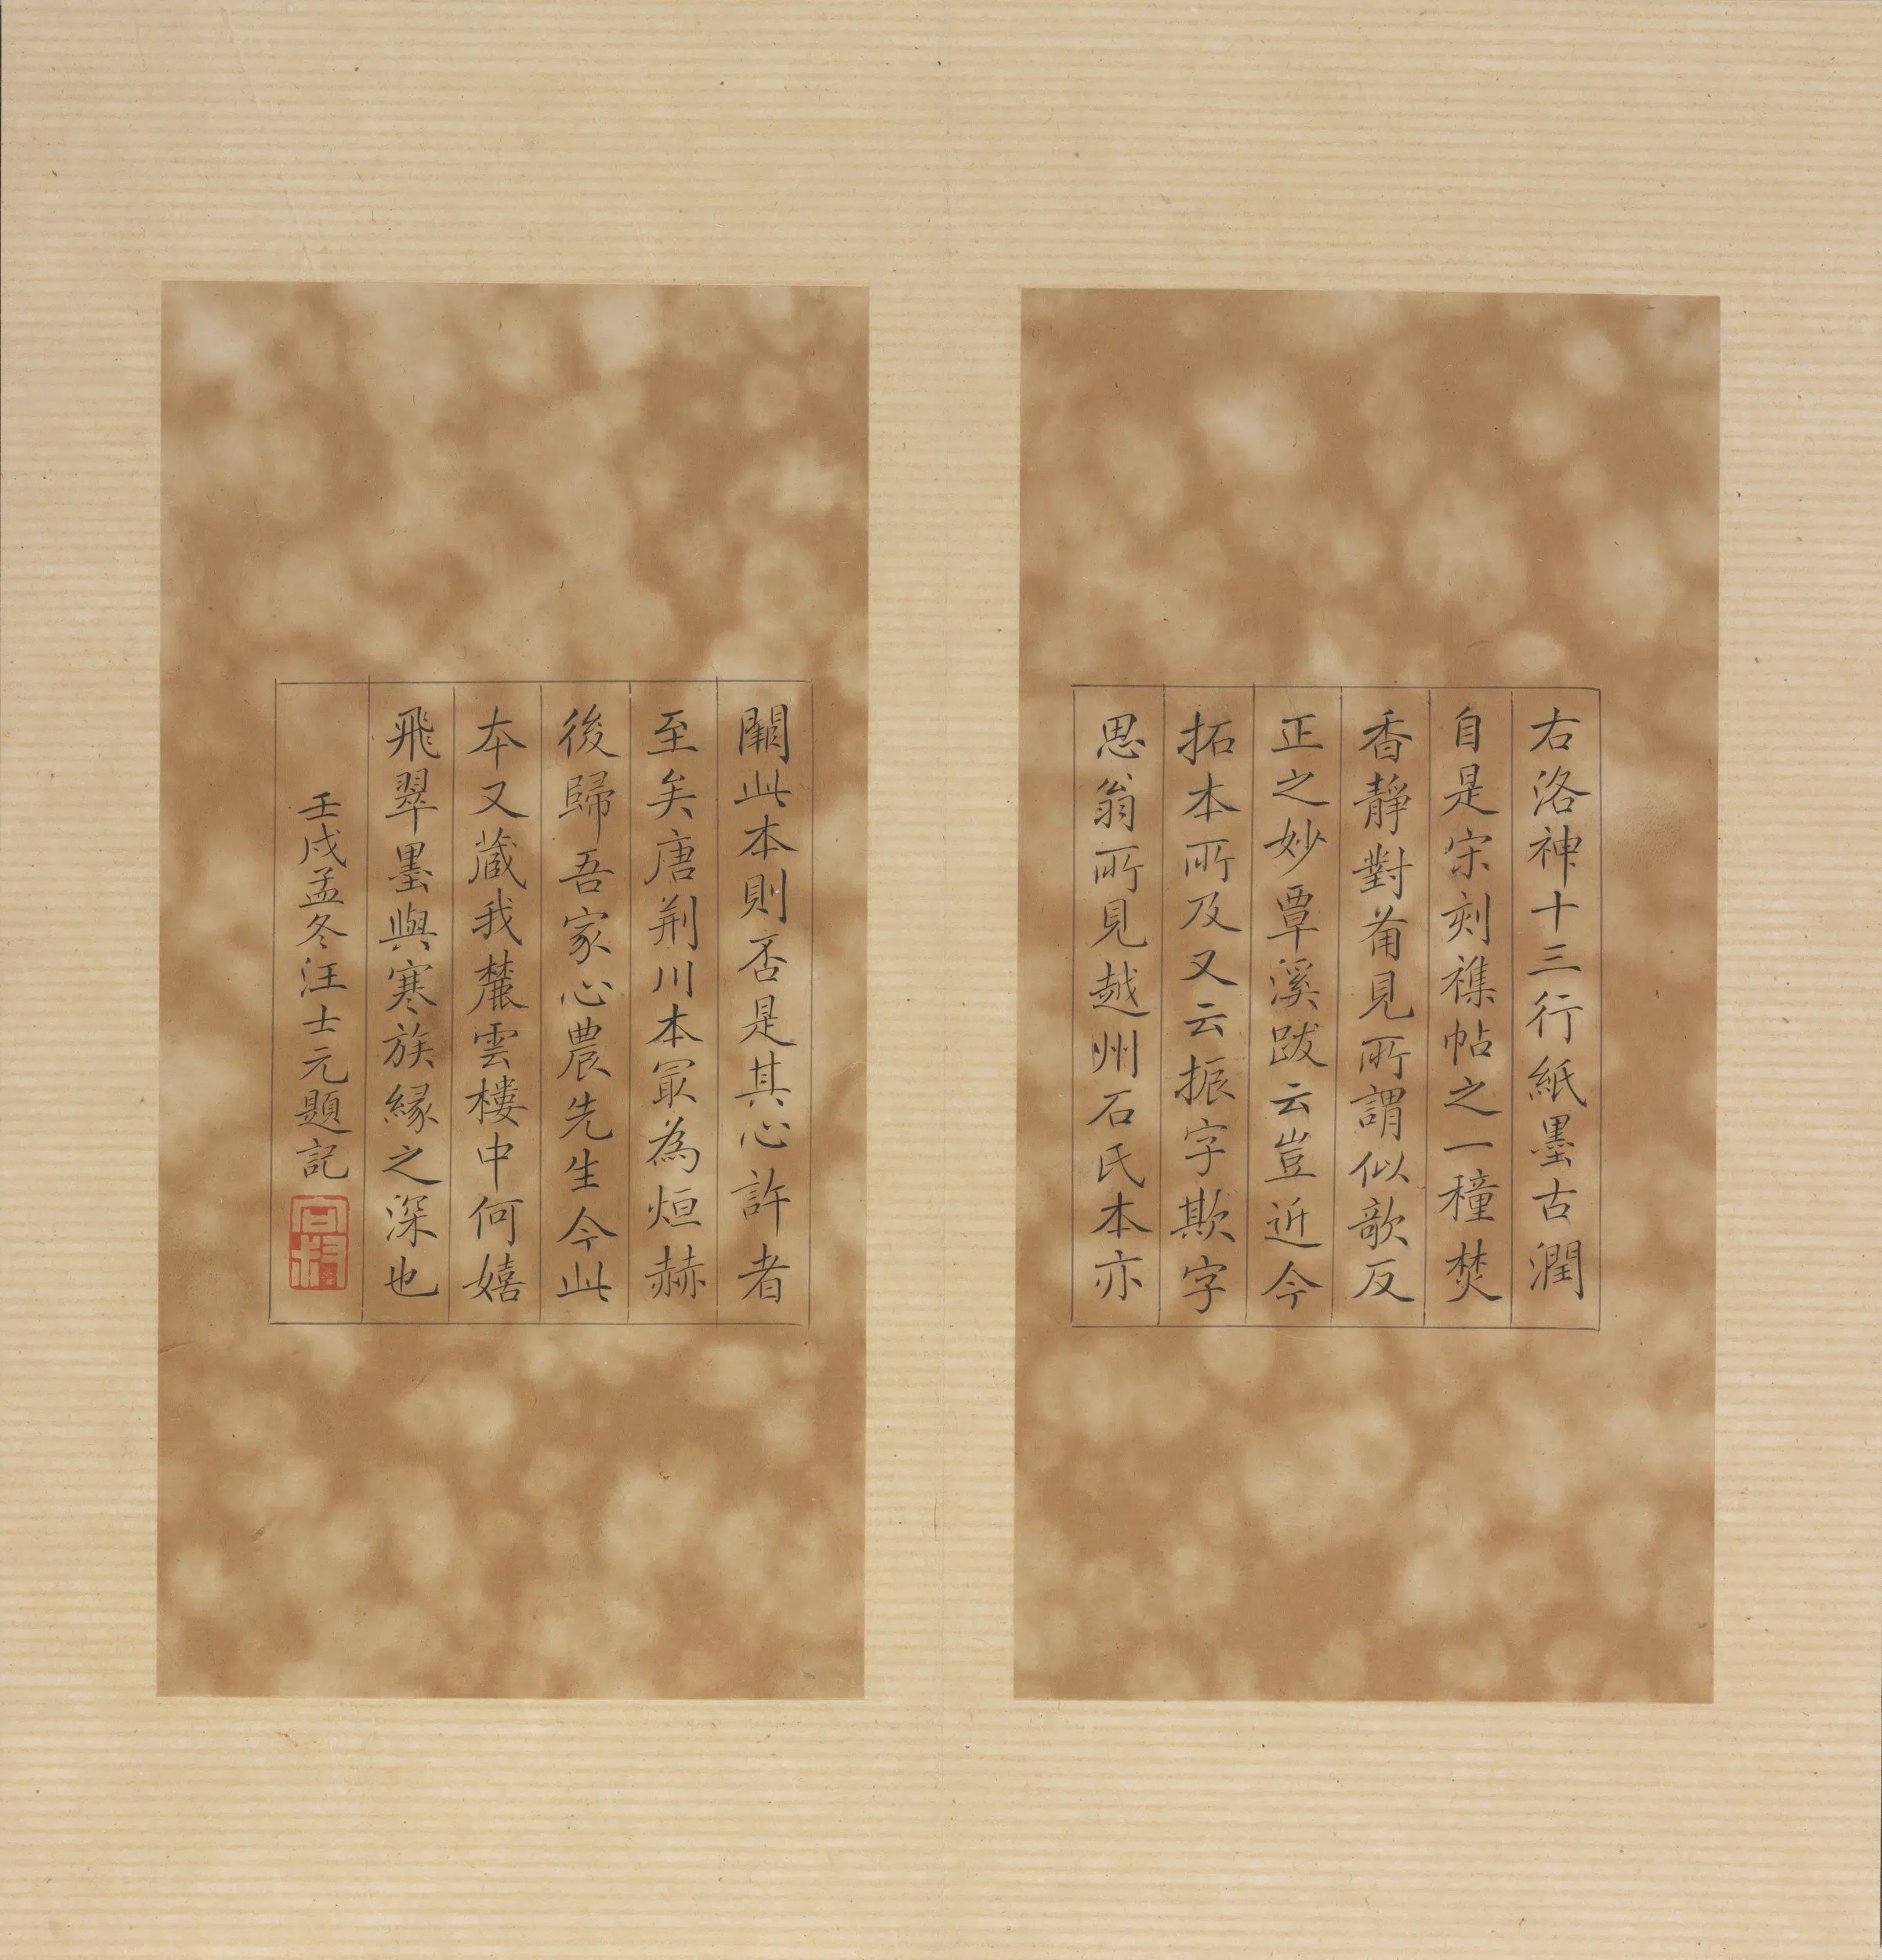 右洛神十三行紙墨古潤
自是宋刻襍帖之一種焚
香靜對葡見所謂似欹反
正之妙覃溪跋云豈近今
拓本所及又云振字欺字
思翁所見越州石氏本亦
闕此本則否是其心許者
至矣唐荆川本冣為烜赫
後歸吾家心農先生今此
本又蔵我麓雲樓中何嬉
飛翠墨與寒族緣之深也
壬戌孟冬汪士元題記